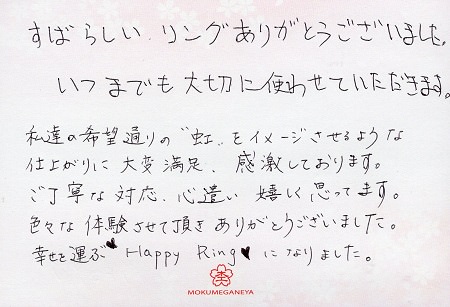 すばらしい リングありがとうございました。
いつまでも大切に使わせていただきます。
私達の希望通りの〝虹〟をイメージさせるような
仕上がりに大変満足、感激しております。
ご丁寧な対応、心遣い 嬉しく思ってます。
色々な体験させて頂き ありがとうございました。
幸せを運ぶ♥Happy Ring♥になりました。
MOKUMEGANEYA